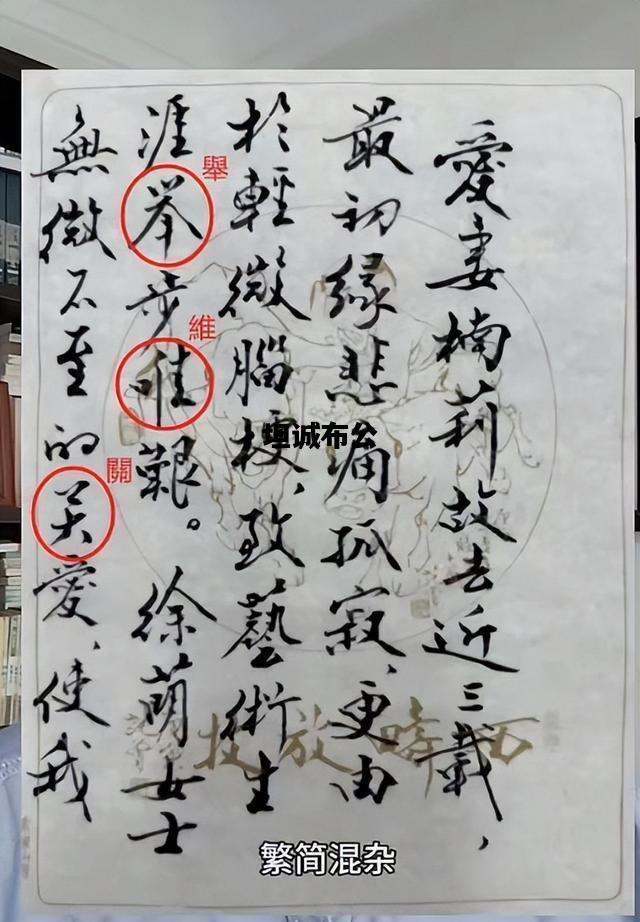 愛妻楠莉故去近三載，
最初緣悲痛孤寂、更由
於輕微腦梗、致藝術生
涯举步唯艱。徐萌女士
無微不至的关愛、使我
舉
維
關
坦诚布公
西疇放牧
繁简混杂